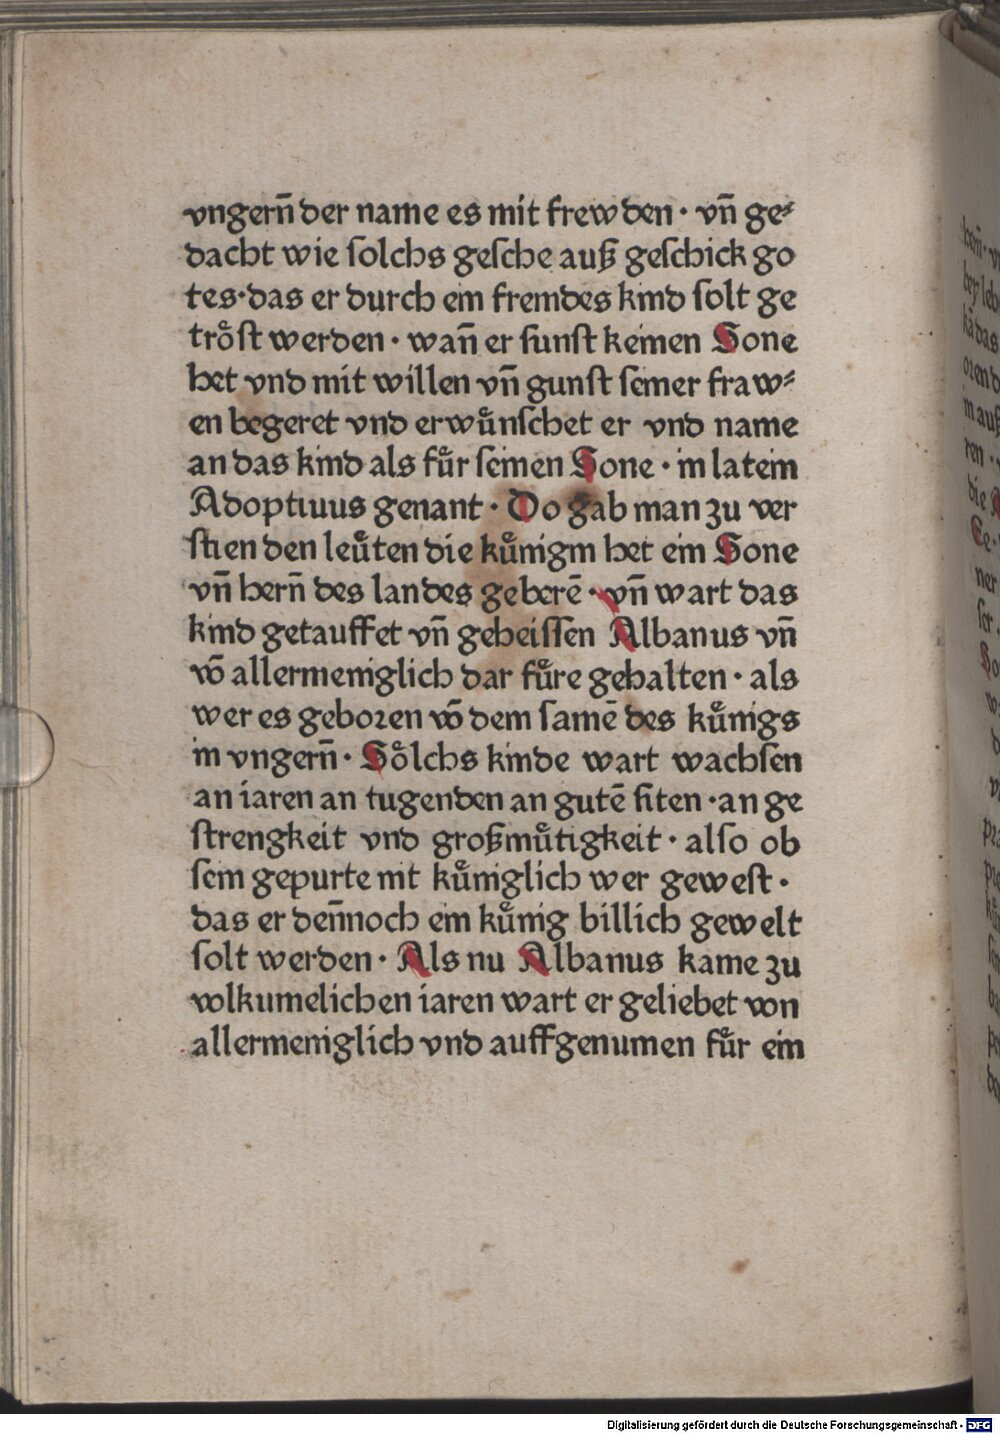 vngern̄ der name es mit frewden · vn̄ ge⸗
dacht wie ſolchs geſche auß geſchick go
tes · das er durch ein fremdes kind ſolt ge
troͤſt werden · wan̄ er ſunſt keinen Sone
het vnd mit willen vn̄ gunſt ſeiner fraw⸗
en begeret vnd erwuͤnſchet er vnd name
an das kind als fuͤr ſeinen Sone · in latein
Adoptiuus genant · Do gab man zu ver
ſtien den leuͤten die kuͤnigin het ein Sone
vn̄ hern̄ des landes geberē · vn̄ wart das
kind getauffet vn̄ geheiſſen Albanus vn̄
vō allermeniglich dar fuͤre gehalten · als
wer es geboꝛen vō dem ſamē des kuͤnigs
in vngern̄ · Soͤlchs kinde wart wachſen
an iaren an tugenden an gutē ſiten · an ge
ſtrengkeit vnd großmuͤtigkeit · alſo ob
ſein gepurte nit kuͤniglich wer geweſt ·
das er den̄noch ein kuͤnig billich gewelt
ſolt werden · Als nu Albanus kame zu
volkumelichen iaren wart er geliebet von
allermeniglich vnd auffgenumen fuͤr ein
Digitalisierung gefördert durch die Deutsche Forschungsgemeinschaft - DFG